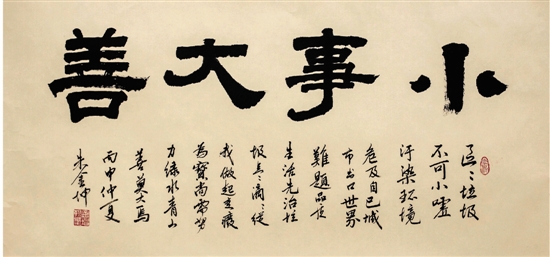 小事大善
区々垃圾
不可小嘘
污染环境
危及自己城
市出口世界
難題品位
生活先治垃
圾点々滴々從
我做起变廢
為寳尚需努
力绿水青山
善莫大焉
丙申仲夏
朱金